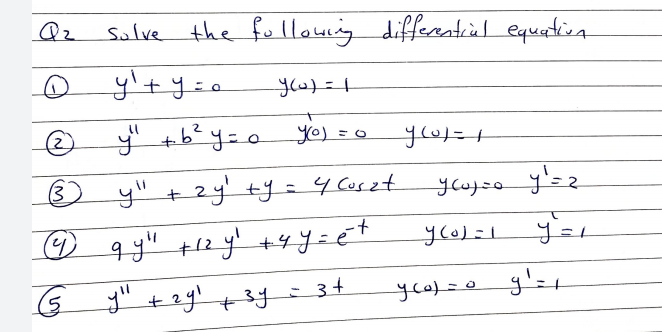 Q2 Solve the following differential equation
① y' + y = 0 y(0) = 1
② y'' + b² y = 0 y'(0) = 0 y(0) = 1
③ y'' + 2y' + y = 4 Cos2t y(0)=0 y'=2
④ 9y'' + 12y' + 4y = e^-t y(0)=1 y'=1
⑤ y'' + 2y' + 3y = 3t y(0)=0 y'=1